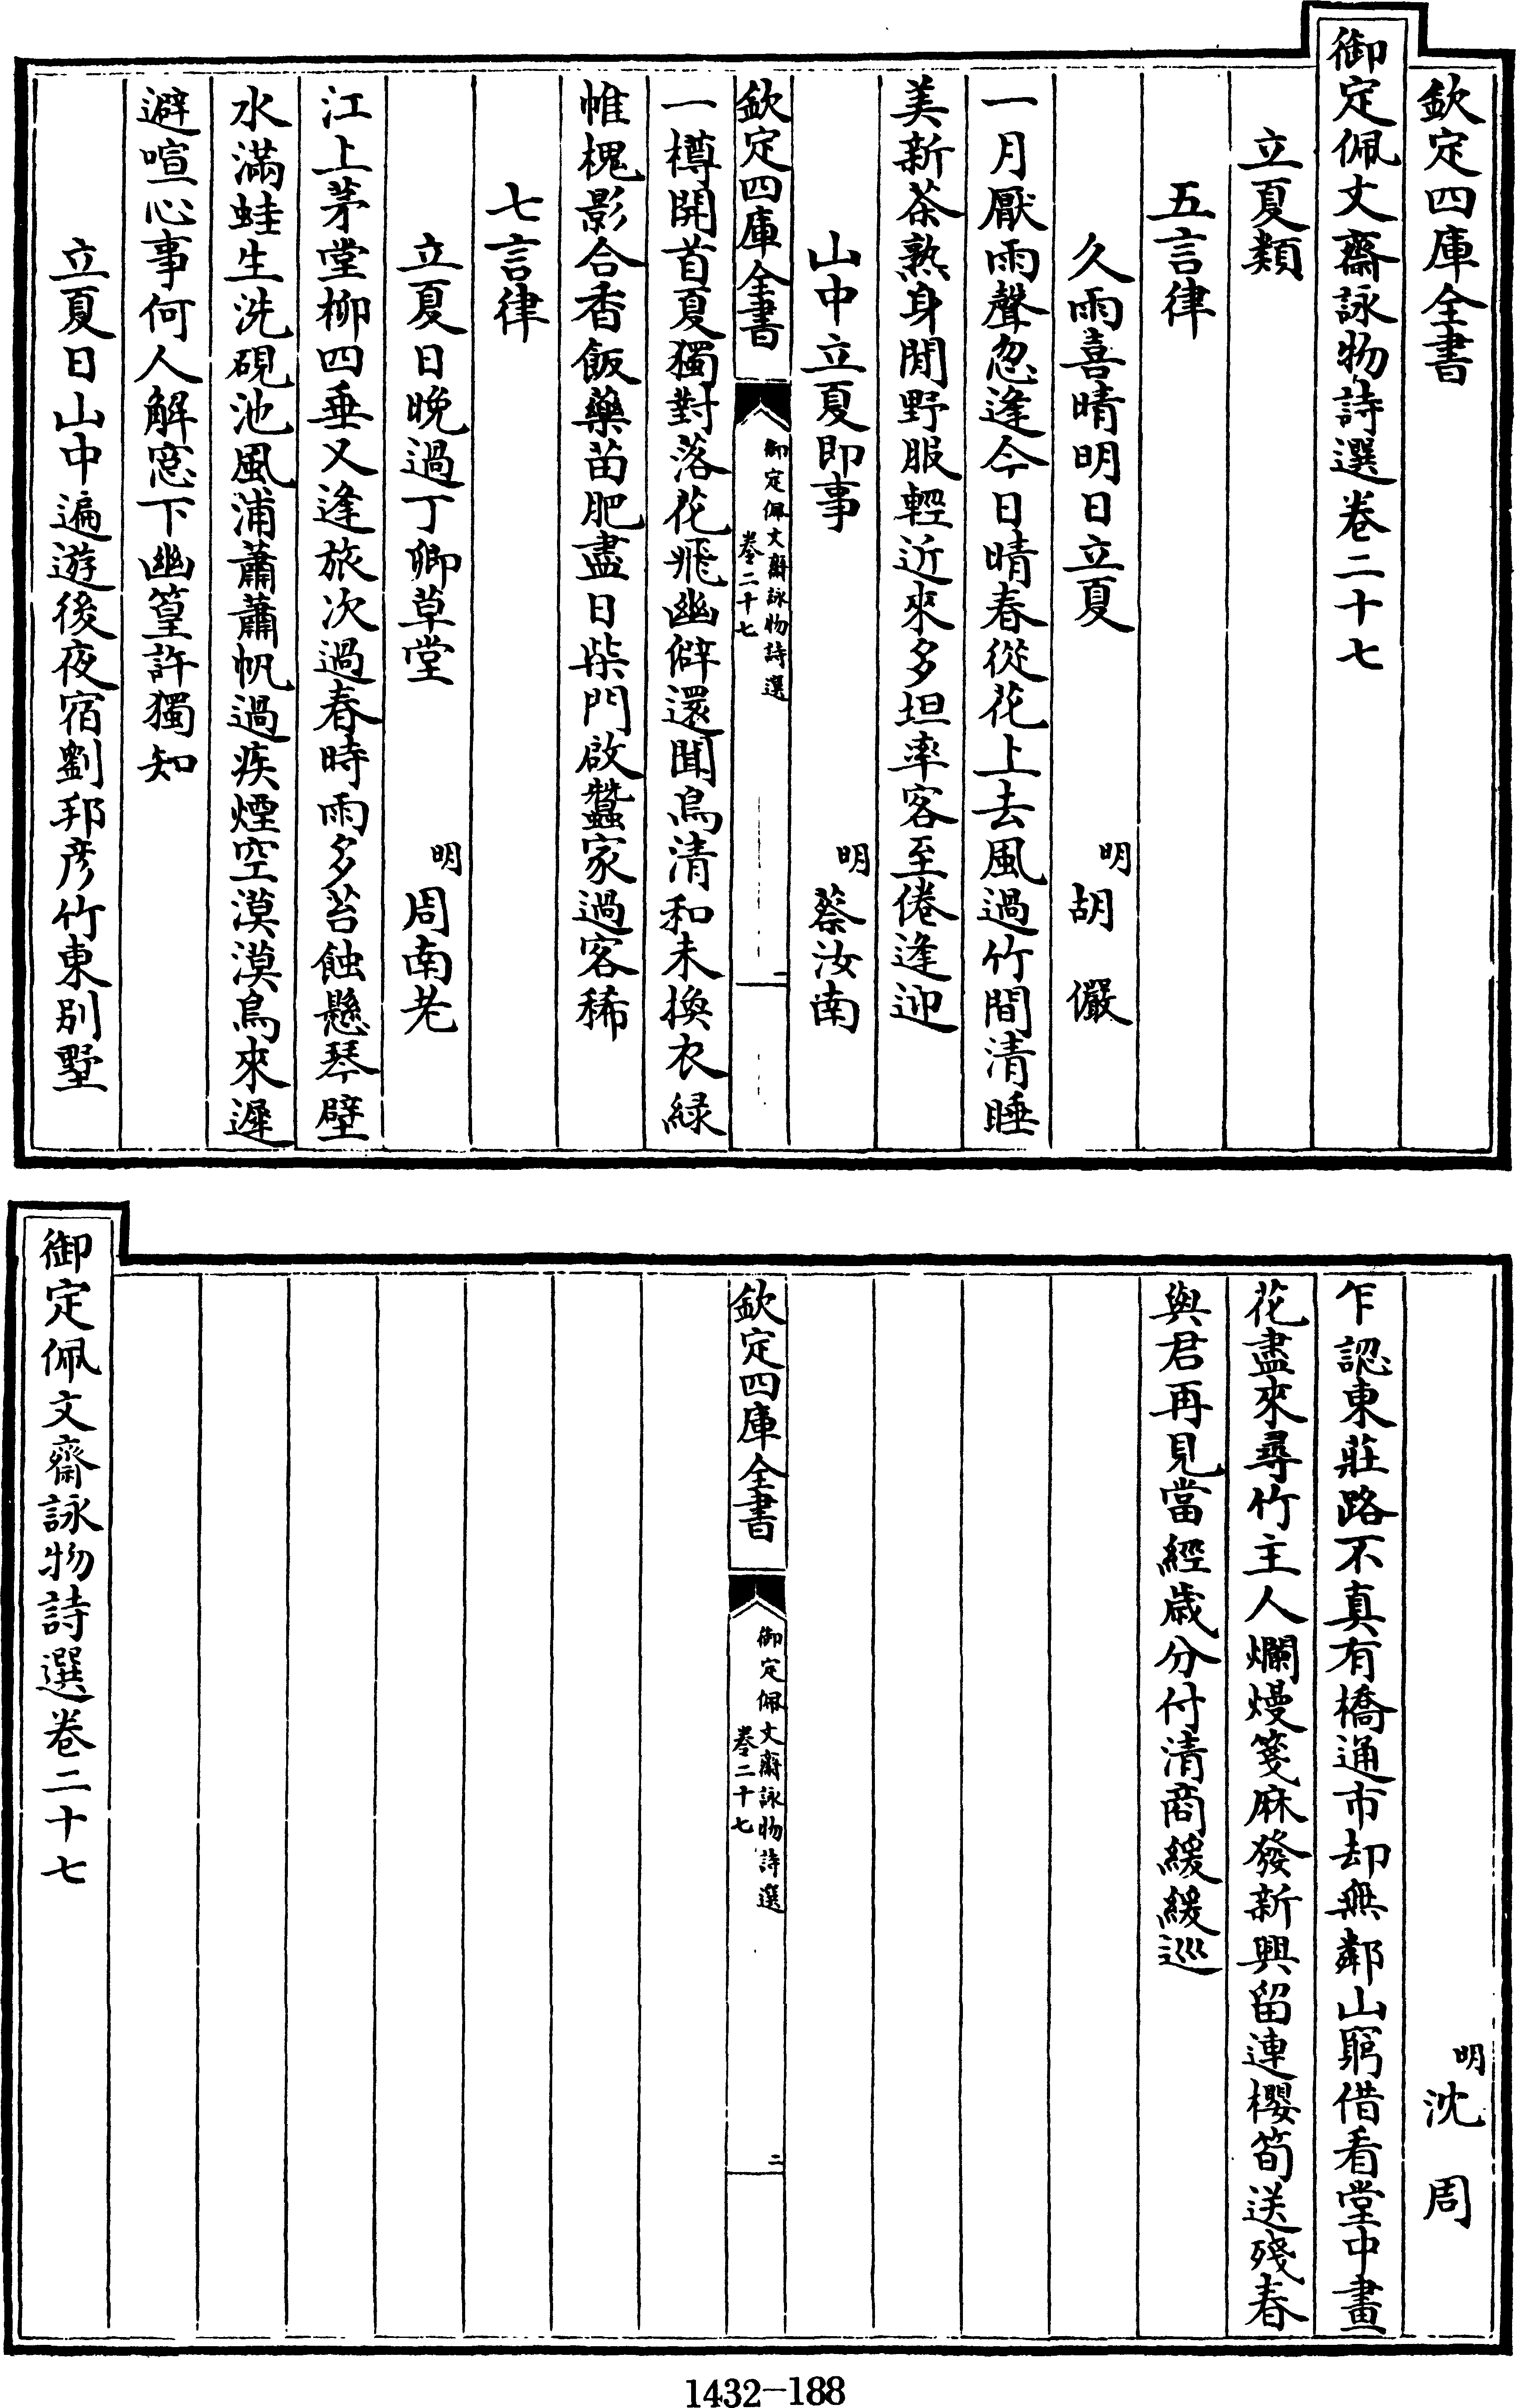 欽定四庫全書
御定佩文齋詠物詩選卷二十七
立夏類
五言律
久雨喜晴明日立夏
明
胡　儼
一月厭雨聲忽逢今日晴春從花上去風過竹間清睡
美新茶熟身閒野服輕近來多坦率客至倦逢迎
山中立夏即事
明
蔡汝南
欽定四庫全書
御定佩文齋詠物詩選
卷二十七
一
一樽開首夏獨對落花飛幽僻還聞鳥清和未換衣緑
帷槐影合香飯藥苗肥盡日柴門啟蠶家過客稀
七言律
立夏日晚過丁卿草堂
明
周南老
江上茅堂柳四垂又逢旅次過春時雨多苔蝕懸琴壁
水滿蛙生洗硯池風浦蕭蕭帆過疾煙空漠漠鳥來遲
避喧心事何人解窓下幽篁許獨知
立夏日山中遍遊後夜宿劉邦彦竹東别墅
明
沈　周
乍認東莊路不真有橋通市却無鄰山窮借看堂中畫
花盡來尋竹主人爛熳箋麻發新興留連櫻筍送殘春
與君再見當經歲分付清商緩緩巡
欽定四庫全書
御定佩文齋詠物詩選
卷二十七
二
御定佩文齋詠物詩選卷二十七
1432-188